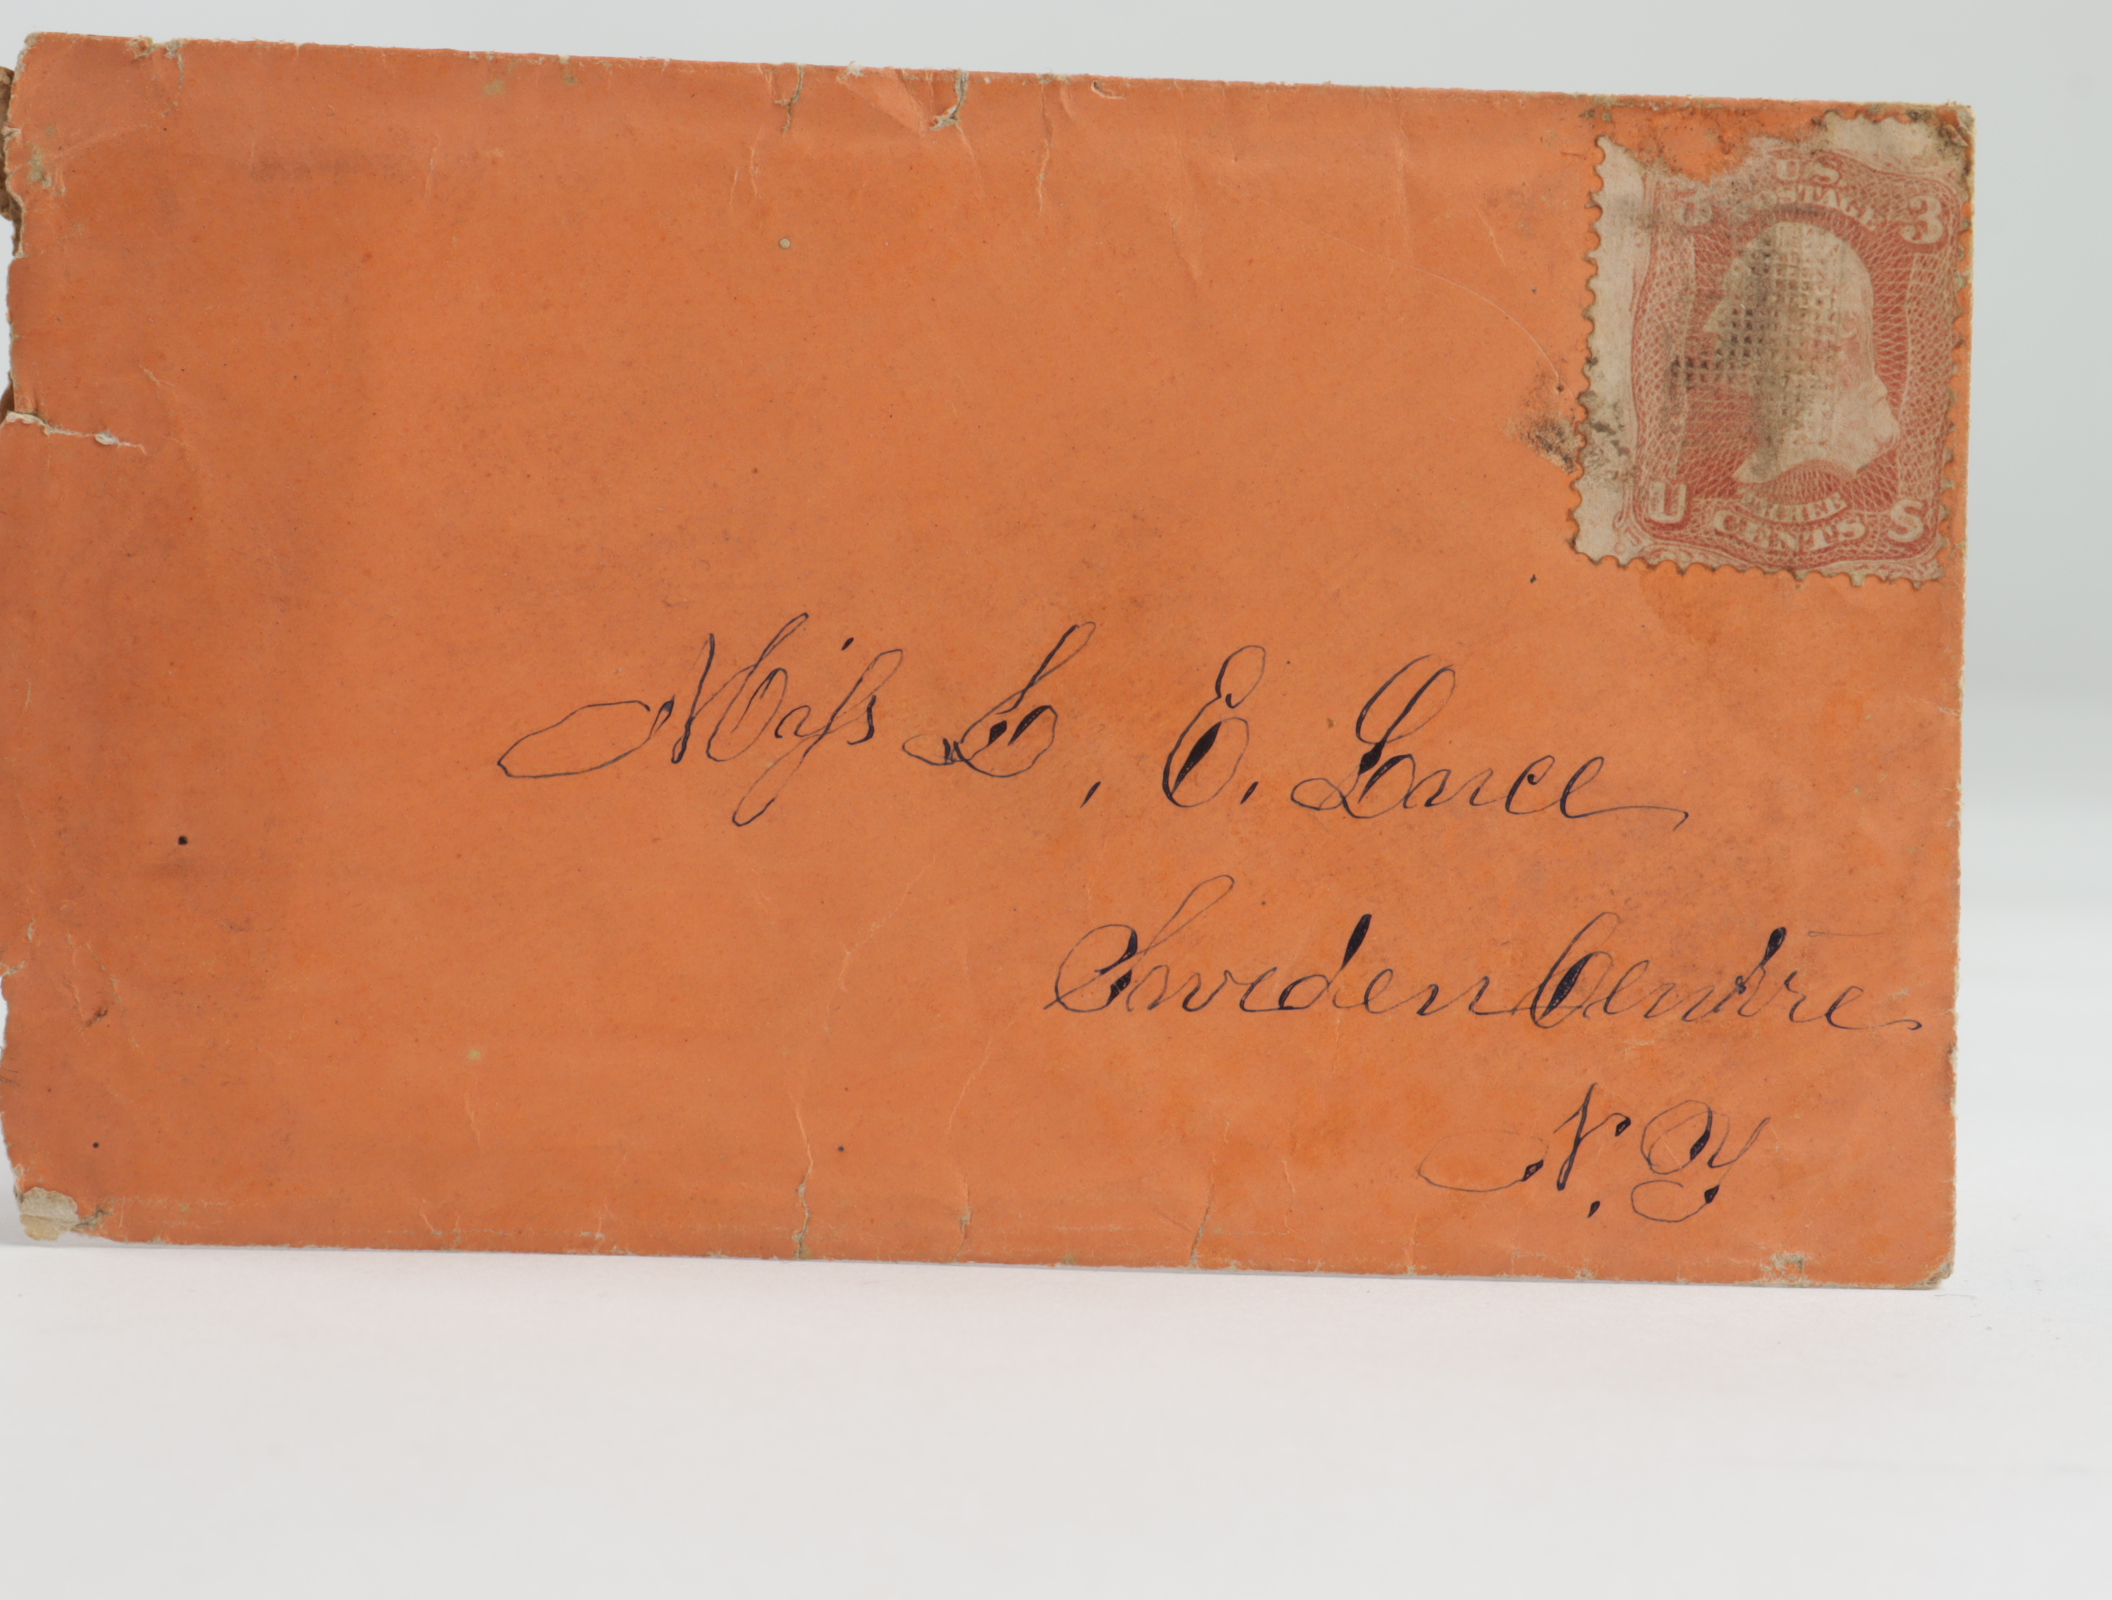 U.S.
POSTAGE
3 3
U S
THREE
CENTS
Miss L. E. Luce
Sweden Centre
N.Y